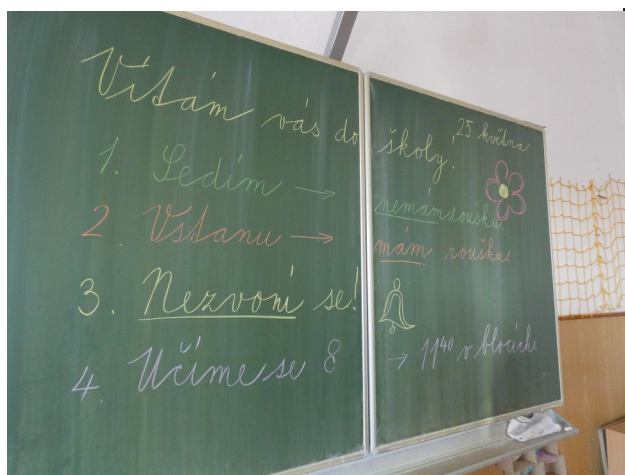 Vítám vás do školy!
25. května
1. Sedím → nemám roušku.
2. Vstanu → mám roušku.
3. Nezvoní se!
4. Učíme se 8 → 11⁴⁰ v blocích.